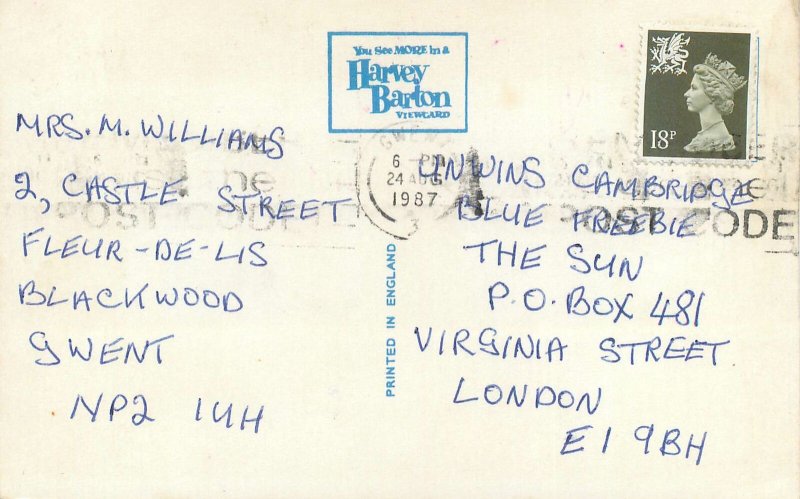 You See MORE in a
Harvey
Barton
VIEWCARD
18P
MRS. M. WILLIAMS
2, CASTLE STREET
FLEUR-DE-LIS
BLACKWOOD
GWENT
NP2 1UH
GWENT
6 - PM
24 AUG
1987
3
POST CODE
PRINTED IN ENGLAND
UNWINS CAMBRIDGE
BLUE FREEBIE
THE SUN
P.O. BOX 481
VIRGINIA STREET
LONDON
E1 9BH
POST CODE